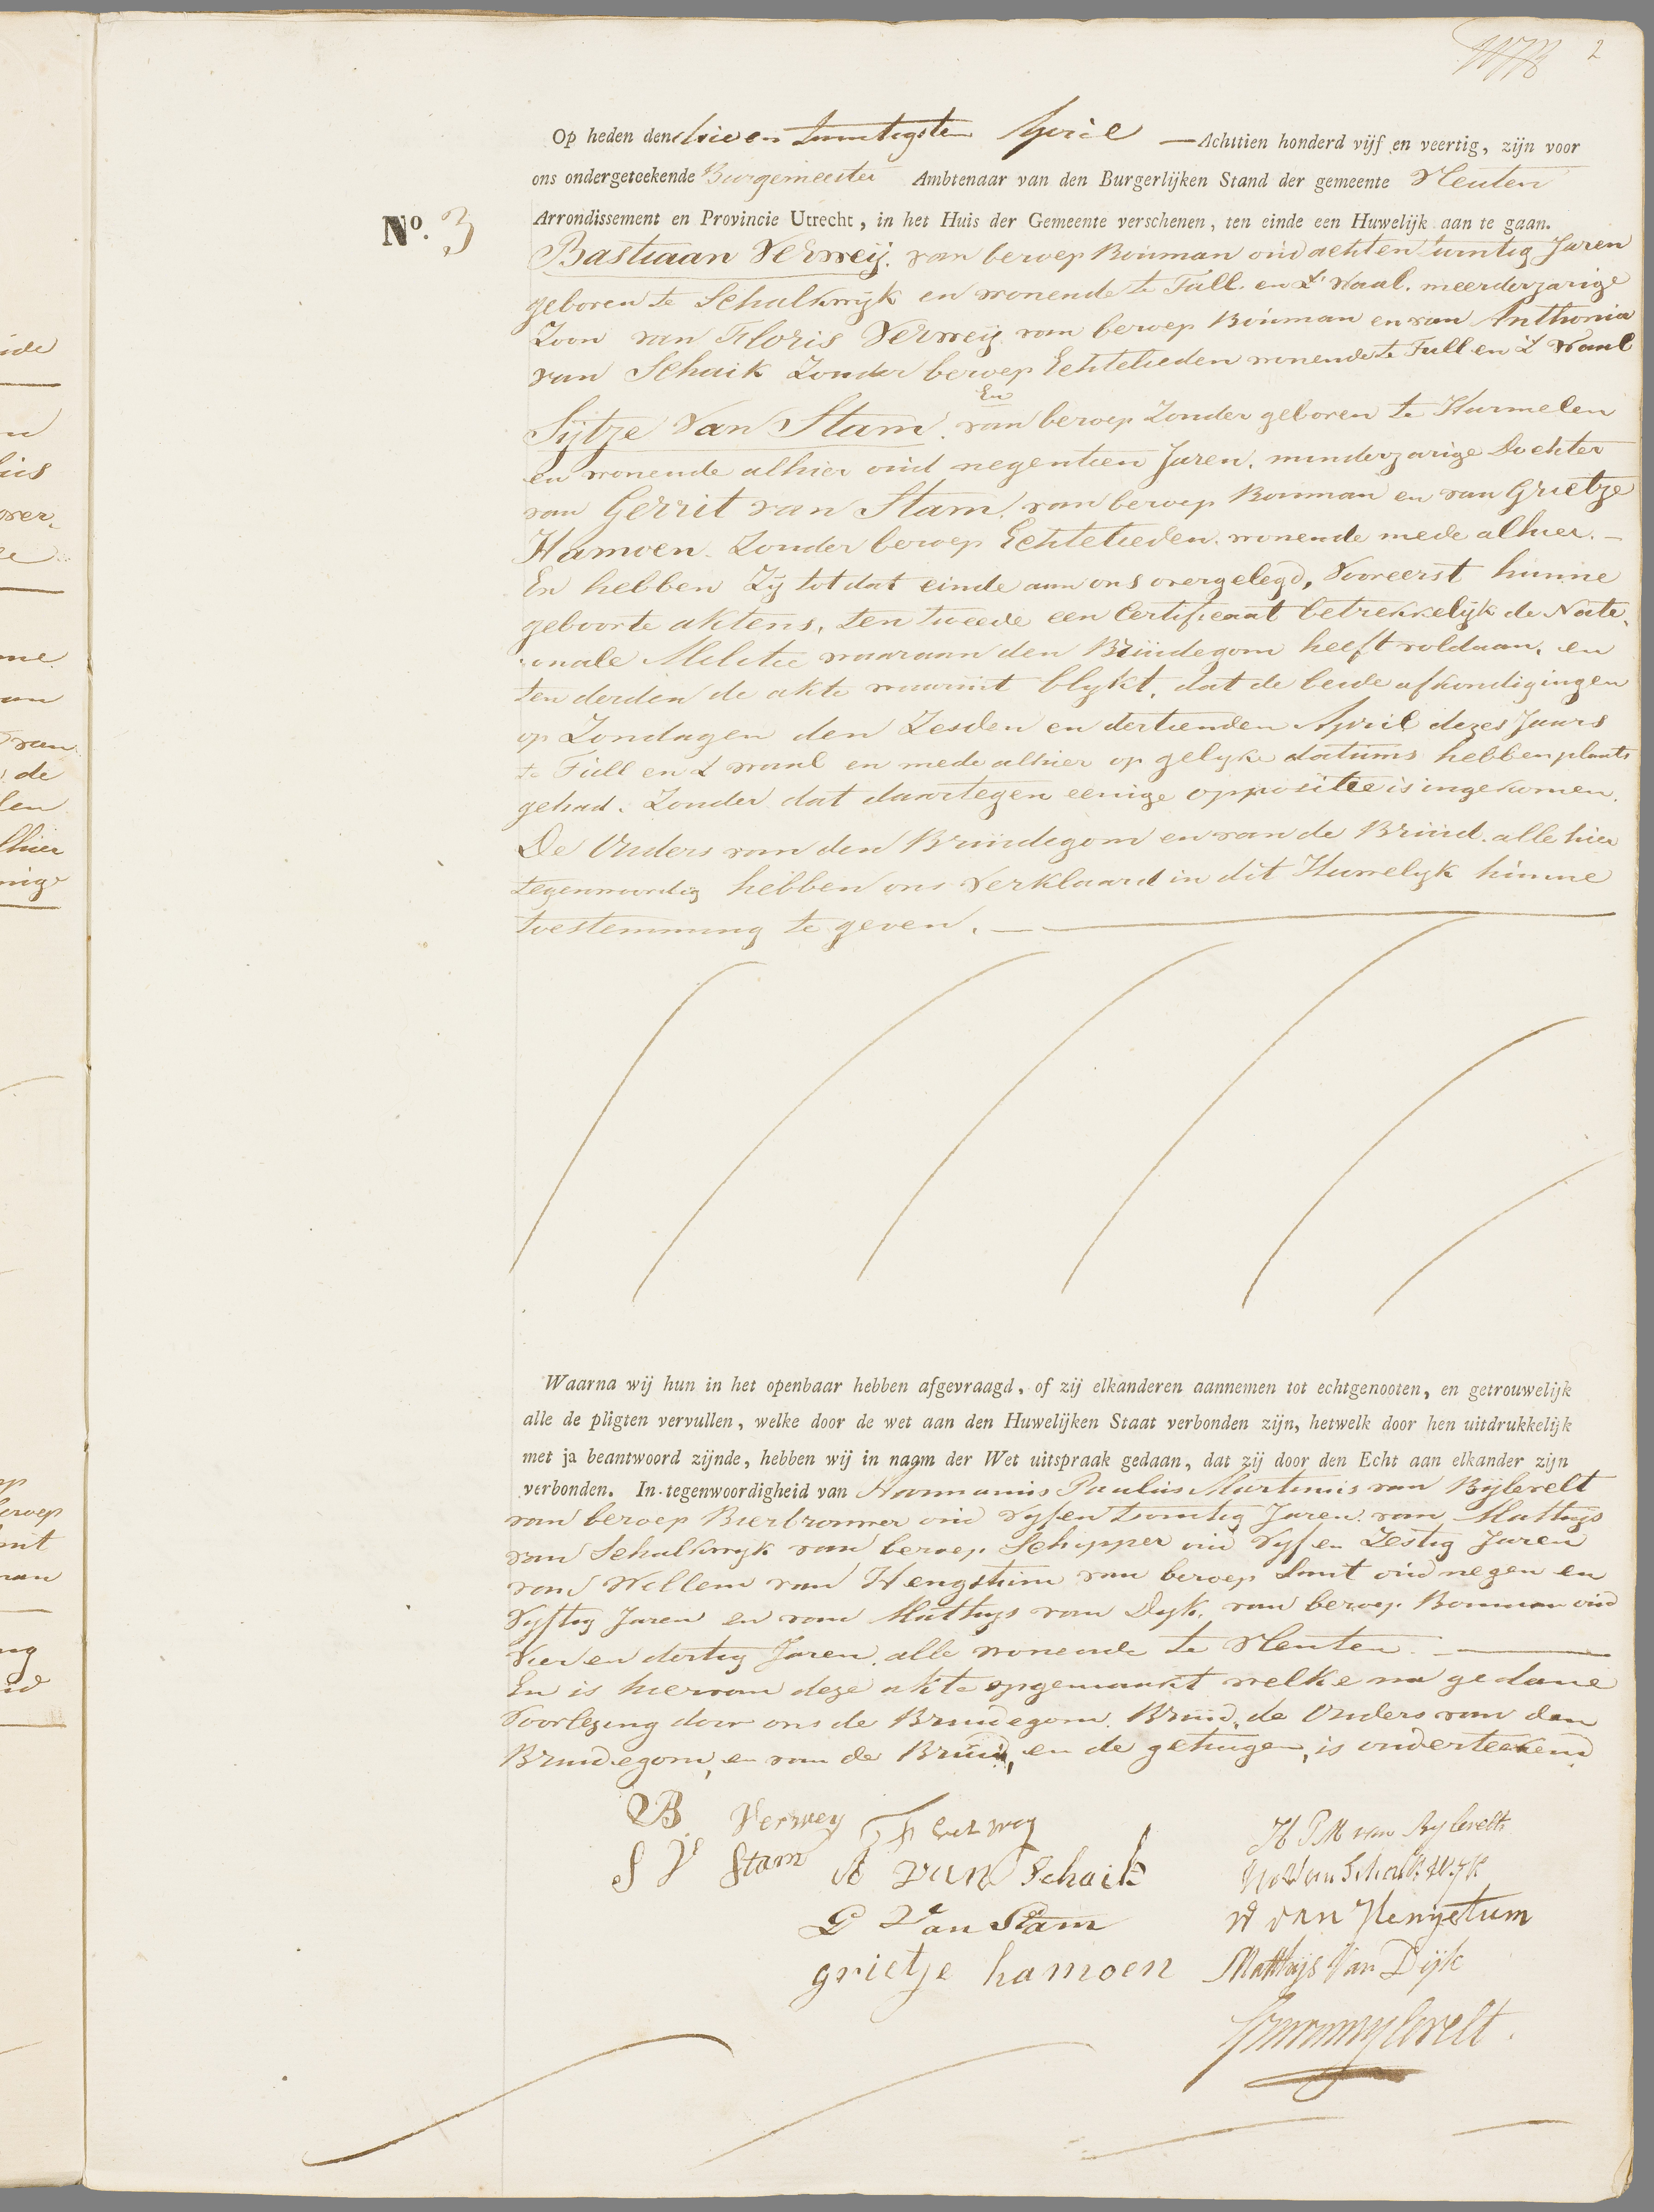 2
Op heden den drie en twintigsten April — Achttien honderd vijf en veertig, zijn voor
ons ondergeteekende Burgemeester Ambtenaar van den Burgerlijken Stand der gemeente Vleuten
No. 3
Arrondissement en Provincie Utrecht, in het Huis der Gemeente verschenen, ten einde een Huwelijk aan te gaan.
Bastiaan Verweij. van beroep Bouman oud acht en twintig Jaren
geboren te Schalkwijk en wonende te Tull. en 't Waal. meerderjarige
Zoon van Floris Verweij van beroep Bouman en van Anthonia
van Schaik Zonder beroep Echtelieden wonende te Tull en 't Waal
En
Sijtje Van Stam. van beroep Zonder geboren te Harmelen
en wonende alhier oud negentien Jaren. minderjarige Dochter
van Gerrit van Stam. van beroep Bouman en van Grietje
Hamoen. Zonder beroep Echtelieden. wonende mede alhier. —
En hebben Zij tot dat einde aan ons overgelegd, Vooreerst hunne
geboorte aktens, ten tweede een Certificaat betrekkelijk de Nati-
onale Militie waaraan den Bruidegom heeft voldaan, en
ten derden de akte waaruit blykt, dat de beide afkondigingen
op Zondagen den Zesden en dertienden April dezes Jaars
te Tull en 't waal en mede alhier op gelyke datums hebben plaats
gehad. Zonder dat daartegen eenige oppositie is ingekomen.
De Ouders van den Bruidegom en van de Bruid. alle hier
tegenwoordig hebben ons Verklaard in dit Huwelyk hunne
toestemming te geven. —
Waarna wij hun in het openbaar hebben afgevraagd, of zij elkanderen aannemen tot echtgenooten, en getrouwelijk
alle de pligten vervullen, welke door de wet aan den Huwelijken Staat verbonden zijn, hetwelk door hen uitdrukkelijk
met ja beantwoord zijnde, hebben wij in naam der Wet uitspraak gedaan, dat zij door den Echt aan elkander zijn
verbonden. In tegenwoordigheid van Hermanus Paulus Martinus van Bijlevelt
van beroep Bierbrouwer oud Vyf en twintig Jaren. van Mathijs
van Schalkwyk van beroep Schipper oud Vyf en Zestig Jaren
van Willem van Hengstum van beroep Smit oud negen en
Vyftig Jaren en van Mathys van Dyk. van beroep Bouman oud
Vier en dertig Jaren. alle wonende te Vleuten. —
En is hiervan deze akte opgemaakt welke na gedane
Voorlezing door ons de Bruidegom. Bruid, de Ouders van den
Bruidegom, en van de Bruid, en de getuigen, is onderteekend.
B Verwey F Verwey H P M van Bylevelt
S V Stam A van Schaik M van Schalkwyk
G Van Stam W van Hengstum
grietje hamoen Matthijs Van Dijk